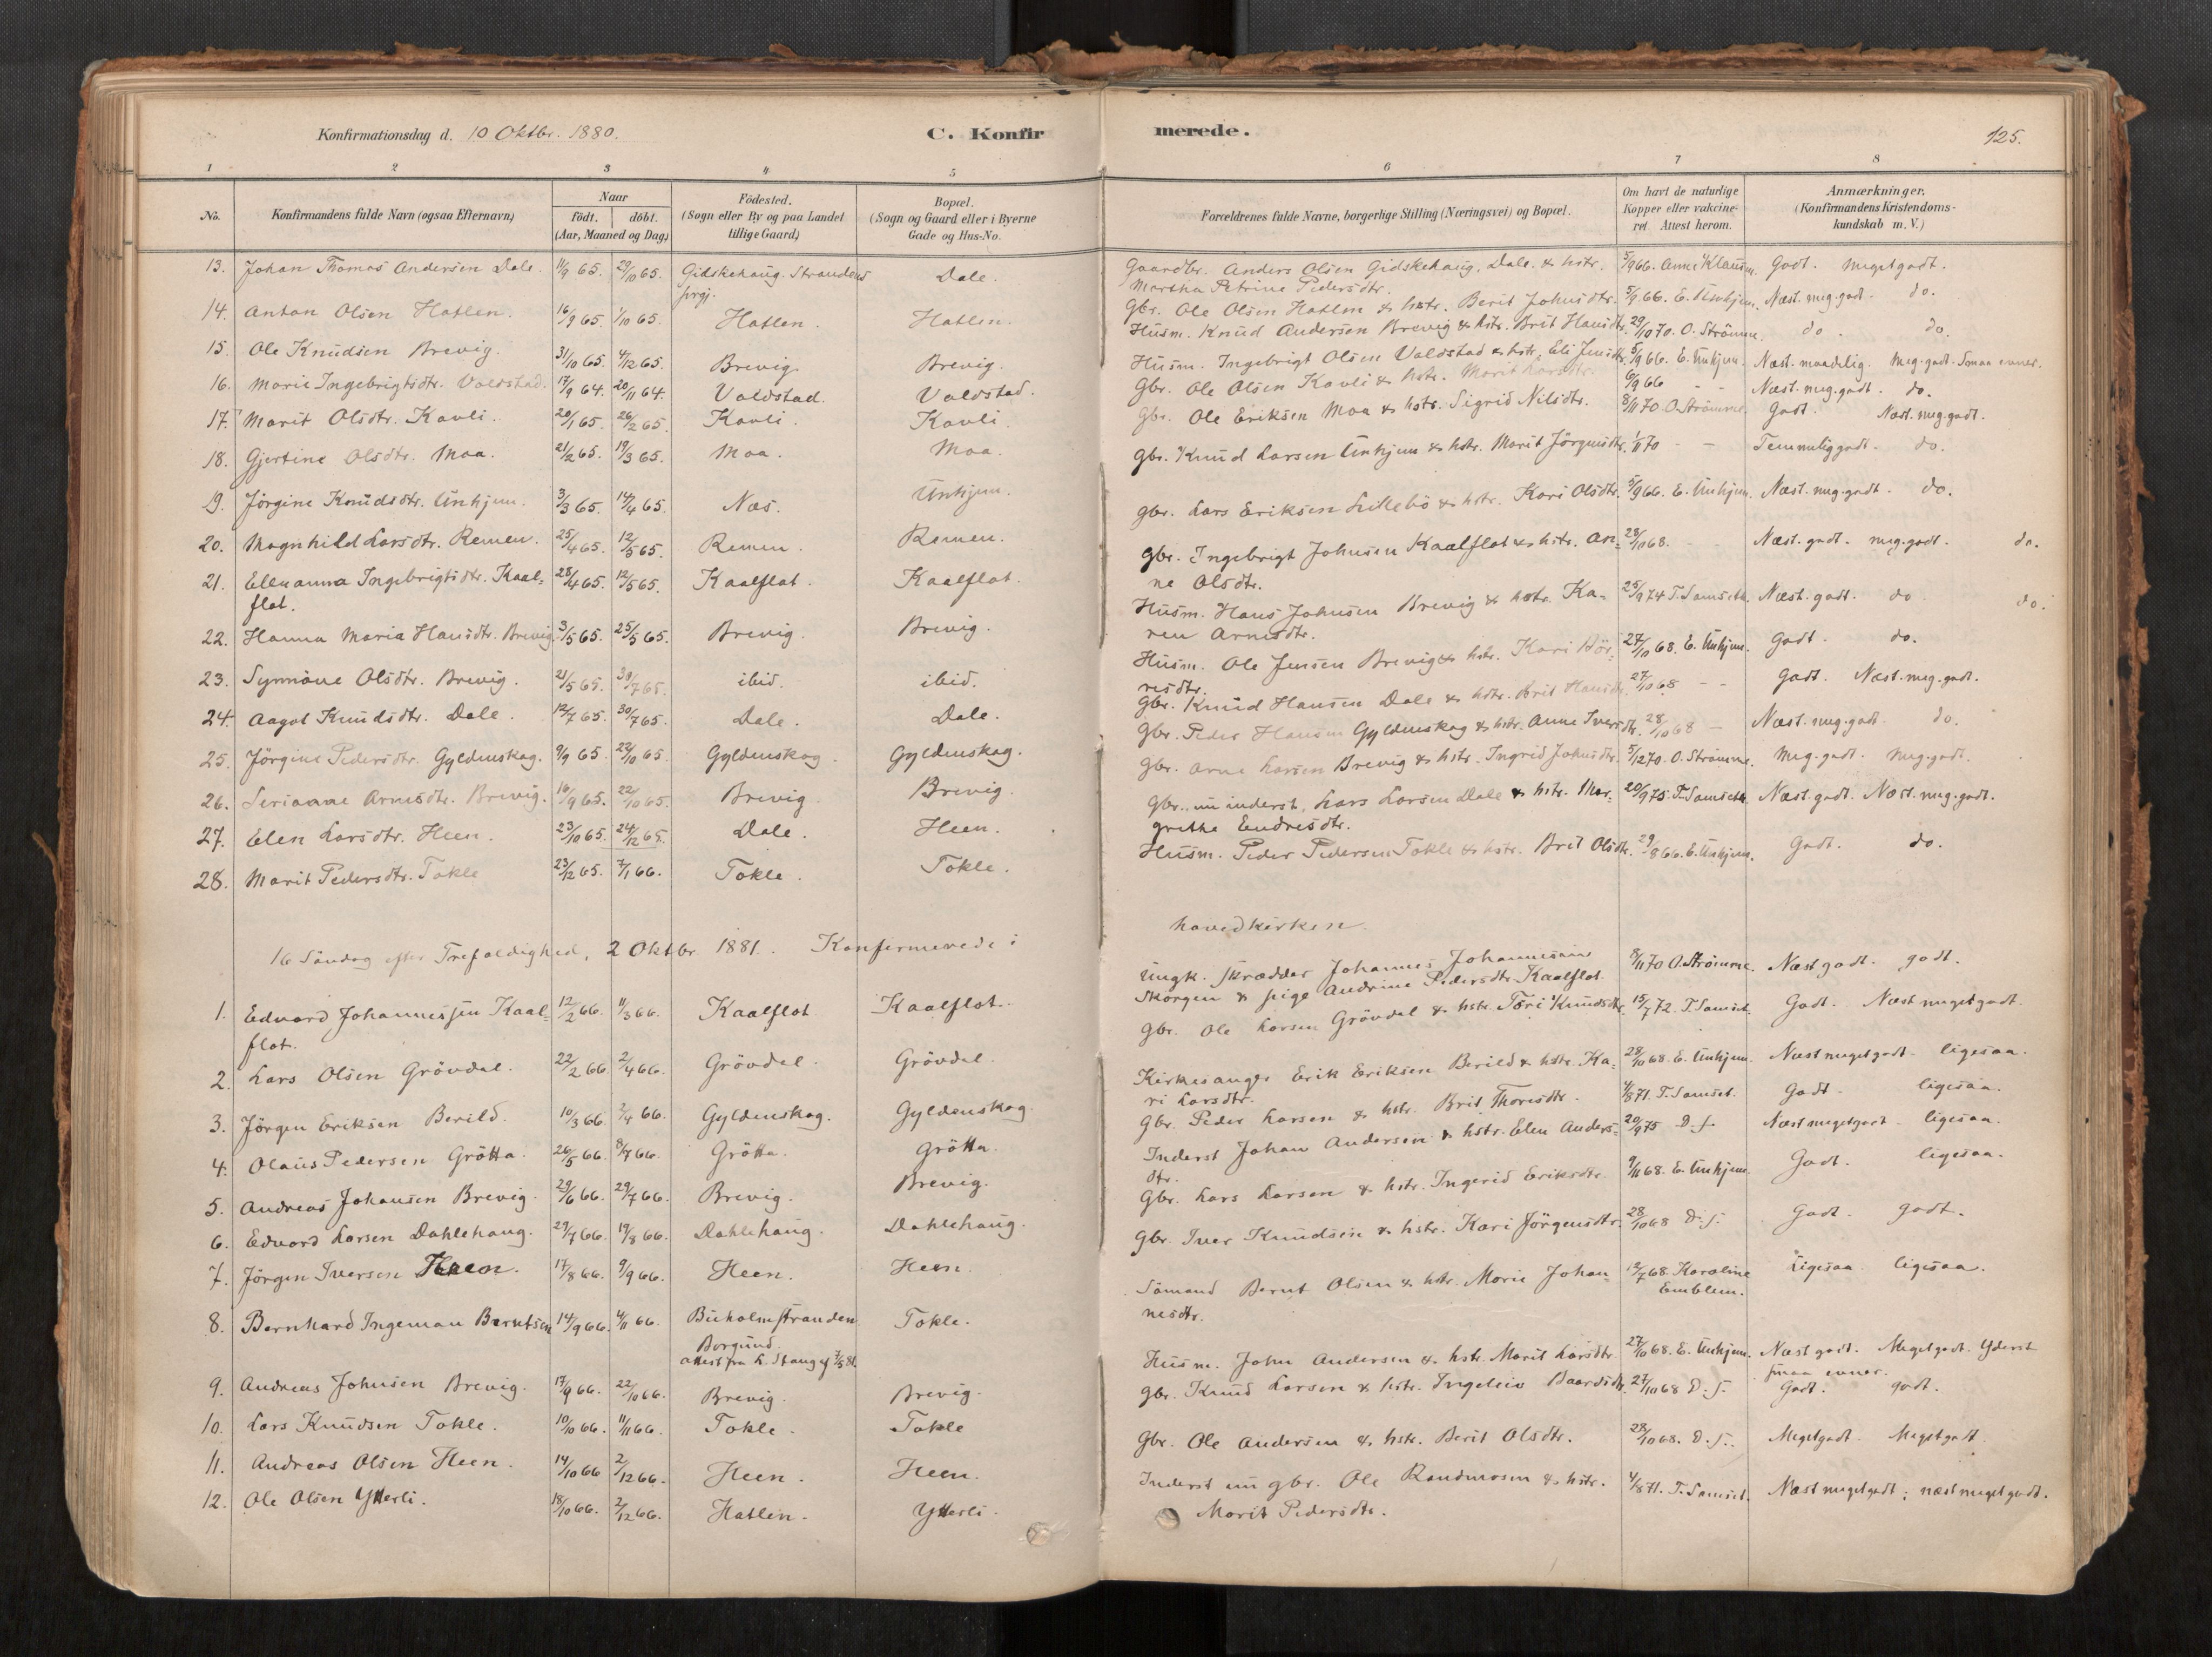 Konfirmationsdag d. 10 Oktbr. 1880. C. Konfirmerede. 125.
1 2 3 4 5 6 7 8
No. Konfirmandens fulde Navn (ogsaa Efternavn) Naar født. døbt. (Aar, Maaned og Dag) Födested. (Sogn eller By og paa Landet tillige Gaard) Bopæl. (Sogn og Gaard eller i Byerne Gade og Hus-No. Forældrenes fulde Navne, borgerlige Stilling (Næringsvei) og Bopæl. Om havt de naturlige Kopper eller vakcineret. Attest herom. Anmærkninger. (Konfirmandens Kristendomskundskab m. V.)
13. Johan Thomas Andersen Dale. 11/9 65. 29/10 65. Gidskehaug. Strandens prgj. Dale. Gaardbr. Anders Olsen Gidskehaug, Dale. & hstr. Martha Petrine Pedersdtr. 5/9 66. Anne Klausen. Godt. megetgodt.
14. Anton Olsen Hatlen. 16/9 65. 1/10 65. Hatlen. Hatlen. Gbr. Ole Olsen Hatlen & hstr. Berit Johnsdtr. 5/9 66. E. Unhjem. Næst. meg. godt. do.
15. Ole Knudsen Brevig. 31/10 65. 4/12 65. Brevig. Brevig. Husm. Knud Andersen Brevig & hstr. Brit Hansdtr. 29/10 70. O. Strömme. do. do.
16. Marie Ingebrigtsdtr. Voldstad. 17/9 64. 20/11 64. Voldstad. Voldstad. Husm. Ingebrigt Olsen Voldstad & hstr. Eli Jensdtr. 5/9 66. E. Unhjem. Næst. maadelig. Meg. godt. Smaa evner.
17. Marit Olsdtr. Kavli. 20/1 65. 26/2 65. Kavli. Kavli. Gbr. Ole Olsen Kavli & hstr. Marit Larsdtr. 6/9 66 - - Næst. meg. godt. do.
18. Gjertine Olsdtr. Moa. 21/2 65. 19/3 65. Moa. Moa. Gbr. Ole Eriksen Moa & hstr. Sigrid Nilsdtr. 8/11 70 O. Strömme. Godt. Næst. meg. godt.
19. Jörgine Knudsdtr. Unhjem. 3/3 65. 14/4 65. Næs. Unhjem. Gbr. Knud Larsen Unhjem & hstr. Marit Jörgensdtr. 1/11 70 - - Temmeliggodt. do.
20. Magnhild Larsdtr. Remen. 25/4 65. 12/5 65. Remen. Remen. Gbr. Lars Eriksen Lillebö & hstr. Kari Olsdtr. 5/9 66. E. Unhjem. Næst. meg. godt. do.
21. Ellenanna Ingebrigtsdtr. Kaalflot. 28/4 65. 12/5 65. Kaalflot. Kaalflot. Gbr. Ingebrigt Johnsen Kaalflot & hstr. Anne Olsdtr. 28/10 68. - - Næst. godt. meg. godt. do.
22. Hanna Maria Hansdtr. Brevig. 3/5 65. 25/5 65. Brevig. Brevig. Husm. Hans Johnsen Brevig & hstr. Karen Arnesdtr. 25/9 74 T. Samseth. Næst. godt. do do.
23. Synnöve Olsdtr. Brevig. 21/5 65. 30/7 65. ibid. ibid. Husm. Ole Jensen Brevig & hstr. Kari 27/10 68. E. Unhjem. Godt. do.
24. Aagot Knudsdtr. Dale. 12/7 65. 30/7 65. Dale. Dale. Gbr. Knud Hansen Dale & hstr. Brit Hansdtr. 27/10 68 - - Godt. Næst. meg. godt.
25. Jörgine Pedersdtr. Gyldenskog. 9/9 65. 22/10 65. Gyldenskog. Gyldenskog. Gbr. Peder Hansen Gyldenskog & hstr. Anne Iversdtr. 28/10 68 - Næst. meg. godt. do.
26. Serianne Arnesdtr. Brevig. 16/9 65. 22/10 65. Brevig. Brevig. Gbr. Arne Larsen Brevig & hstr. Ingrid Johnsdtr. 5/12 70. O. Strömme. Meg. godt. Meg. godt.
27. Elen Larsdtr. Heen. 23/10 65. 24/12 65. Dale. Heen. Gbr. nu inderst, Lars Larsen Dale & hstr. Margrethe Endresdtr. 20/9 75. T. Samseth. Næst. godt. Næst. meg. godt.
28. Marit Pedersdtr. Tokle 23/12 65. 7/1 66. Tokle. Tokle. Husm. Peder Pedersen Tokle & hstr. Brit Olsdtr. 29/8 66. E. Unhjem. Godt. do.
16 Söndag efter Trefoldighed, 2 Oktbr 1881. Konfirmerede i hovedkirken.
1. Edvard Johannessen Kaalflot. 12/2 66. 11/3 66. Kaalflot Kaalflot. Ungk. skrædder Johannes Johannessen Skorgen & pige Andrine Pedersdtr. Kaalflot. 8/11 70 O. Strömme. Næst godt. godt.
2. Lars Olsen Grövdal. 22/2 66. 2/4 66. Grövdal. Grövdal. Gbr. Ole Larsen Grövdal & hstr. Töri Knudsdtr. 15/7 72. T. Samset. Godt. Næst megetgodt.
3. Jörgen Eriksen Berild. 10/3 66. 2/4 66. Gyldenskog. Gyldenskog Kirkesanger Erik Eriksen Berild & hstr. Kari Larsdtr. 28/10 68. E. Unhjem. Næst megetgodt. ligesaa.
4. Olaus Pedersen Grötta. 26/5 66. 8/7 66. Grötta. Grötta. Gbr. Peder Larsen & hstr. Brit Thoresdtr. 4/8 71. T. Samset. Godt. ligesaa.
5. Andreas Johansen Brevig. 29/6 66. 29/7 66. Brevig. Brevig. Inderst Johan Andersen & hstr. Elen Andersdtr. 20/9 75 D. s. Næst megetgodt. ligesaa.
6. Edvard Larsen Dahlehaug. 29/7 66. 19/8 66. Dahlehaug. Dahlehaug. Gbr. Lars Larsen & hstr. Ingerid Eriksdtr. 9/11 68. E. Unhjem. Godt. ligesaa.
7. Jörgen Iversen Heen. 17/8 66. 9/9 66. Heen. Heen. Gbr. Iver Knudsen & hstr. Kari Jörgensdtr. 28/10 68 D. s. Godt. godt.
8. Bernhard Ingeman Berntsen 14/9 66. 4/11 66. Buholmstranden Borgund. attest fra L. Stang af 7/5 81. Tokle. Sömand Bernt Olsen & hstr. Marie Johannesdtr. 13/7 68. Karoline Emblem. Ligesaa. ligesaa.
9. Andreas Johnsen Brevig. 17/9 66. 22/10 66. Brevig. Brevig. Husm. John Andersen & hstr. Marit Larsdtr. 27/10 68. E. Unhjem. Næst godt. Megetgodt. Yderst smaa evner.
10. Lars Knudsen Tokle. 10/10 66. 11/11 66. Tokle. Tokle Gbr. Knud Larsen & hstr. Ingeleiv Baardsdtr. 27/10 68 D. s. Godt. godt.
11. Andreas Olsen Heen. 14/10 66 2/12 66. Heen. Heen. Gbr. Ole Andersen & hstr. Berit Olsdtr. 28/10 68. D. s. Megetgodt. Megetgodt.
12. Ole Olsen Ytterli. 18/10 66. 2/12 66. Hatlen. Ytterli. Inderst nu gbr. Ole & hstr. Marit Pedersdtr. 4/8 71. T. Samset. Næst megetgodt; næst megetgodt.